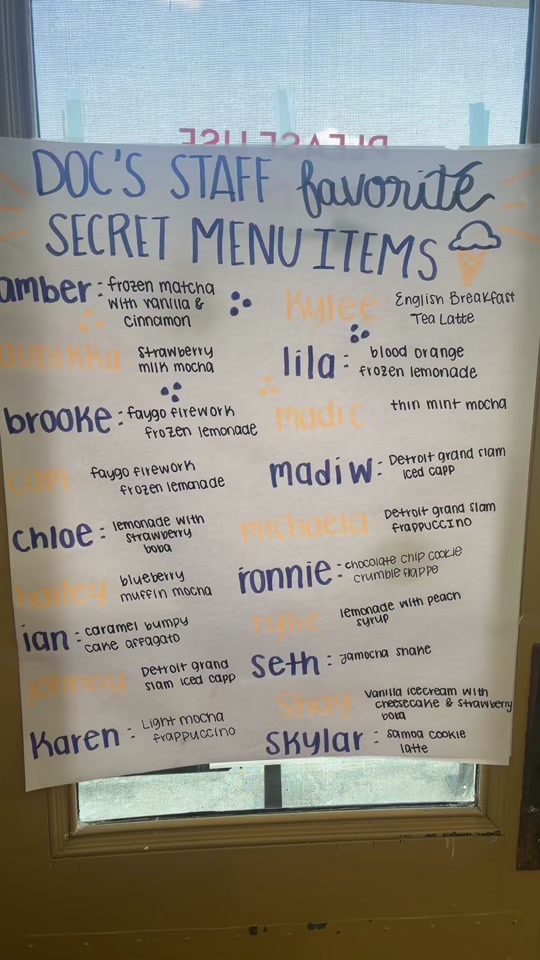 PLEASE USE
DOC'S STAFF favorite
SECRET MENU ITEMS
amber: frozen matcha
with vanilla &
cinnamon
strawberry
milk mocha
brooke: faygo firework
frozen lemonade
cam faygo firework
frozen lemonade
chloe: lemonade with
strawberry
boba
hailey blueberry
muffin mocha
ian: caramel bumpy
cake affagato
johnny Detroit grand
slam iced capp
Karen: Light mocha
frappuccino
Kylee English Breakfast
Tea Latte
lila: blood orange
frozen lemonade
madi c thin mint mocha
madi w: Detroit grand slam
iced capp
michaela Detroit grand slam
frappuccino
ronnie: chocolate chip cookie
crumble frappe
rylie lemonade with peach
syrup
Seth: jamocha shake
Shay vanilla icecream with
cheesecake & strawberry
boba
Skylar: samoa cookie
latte